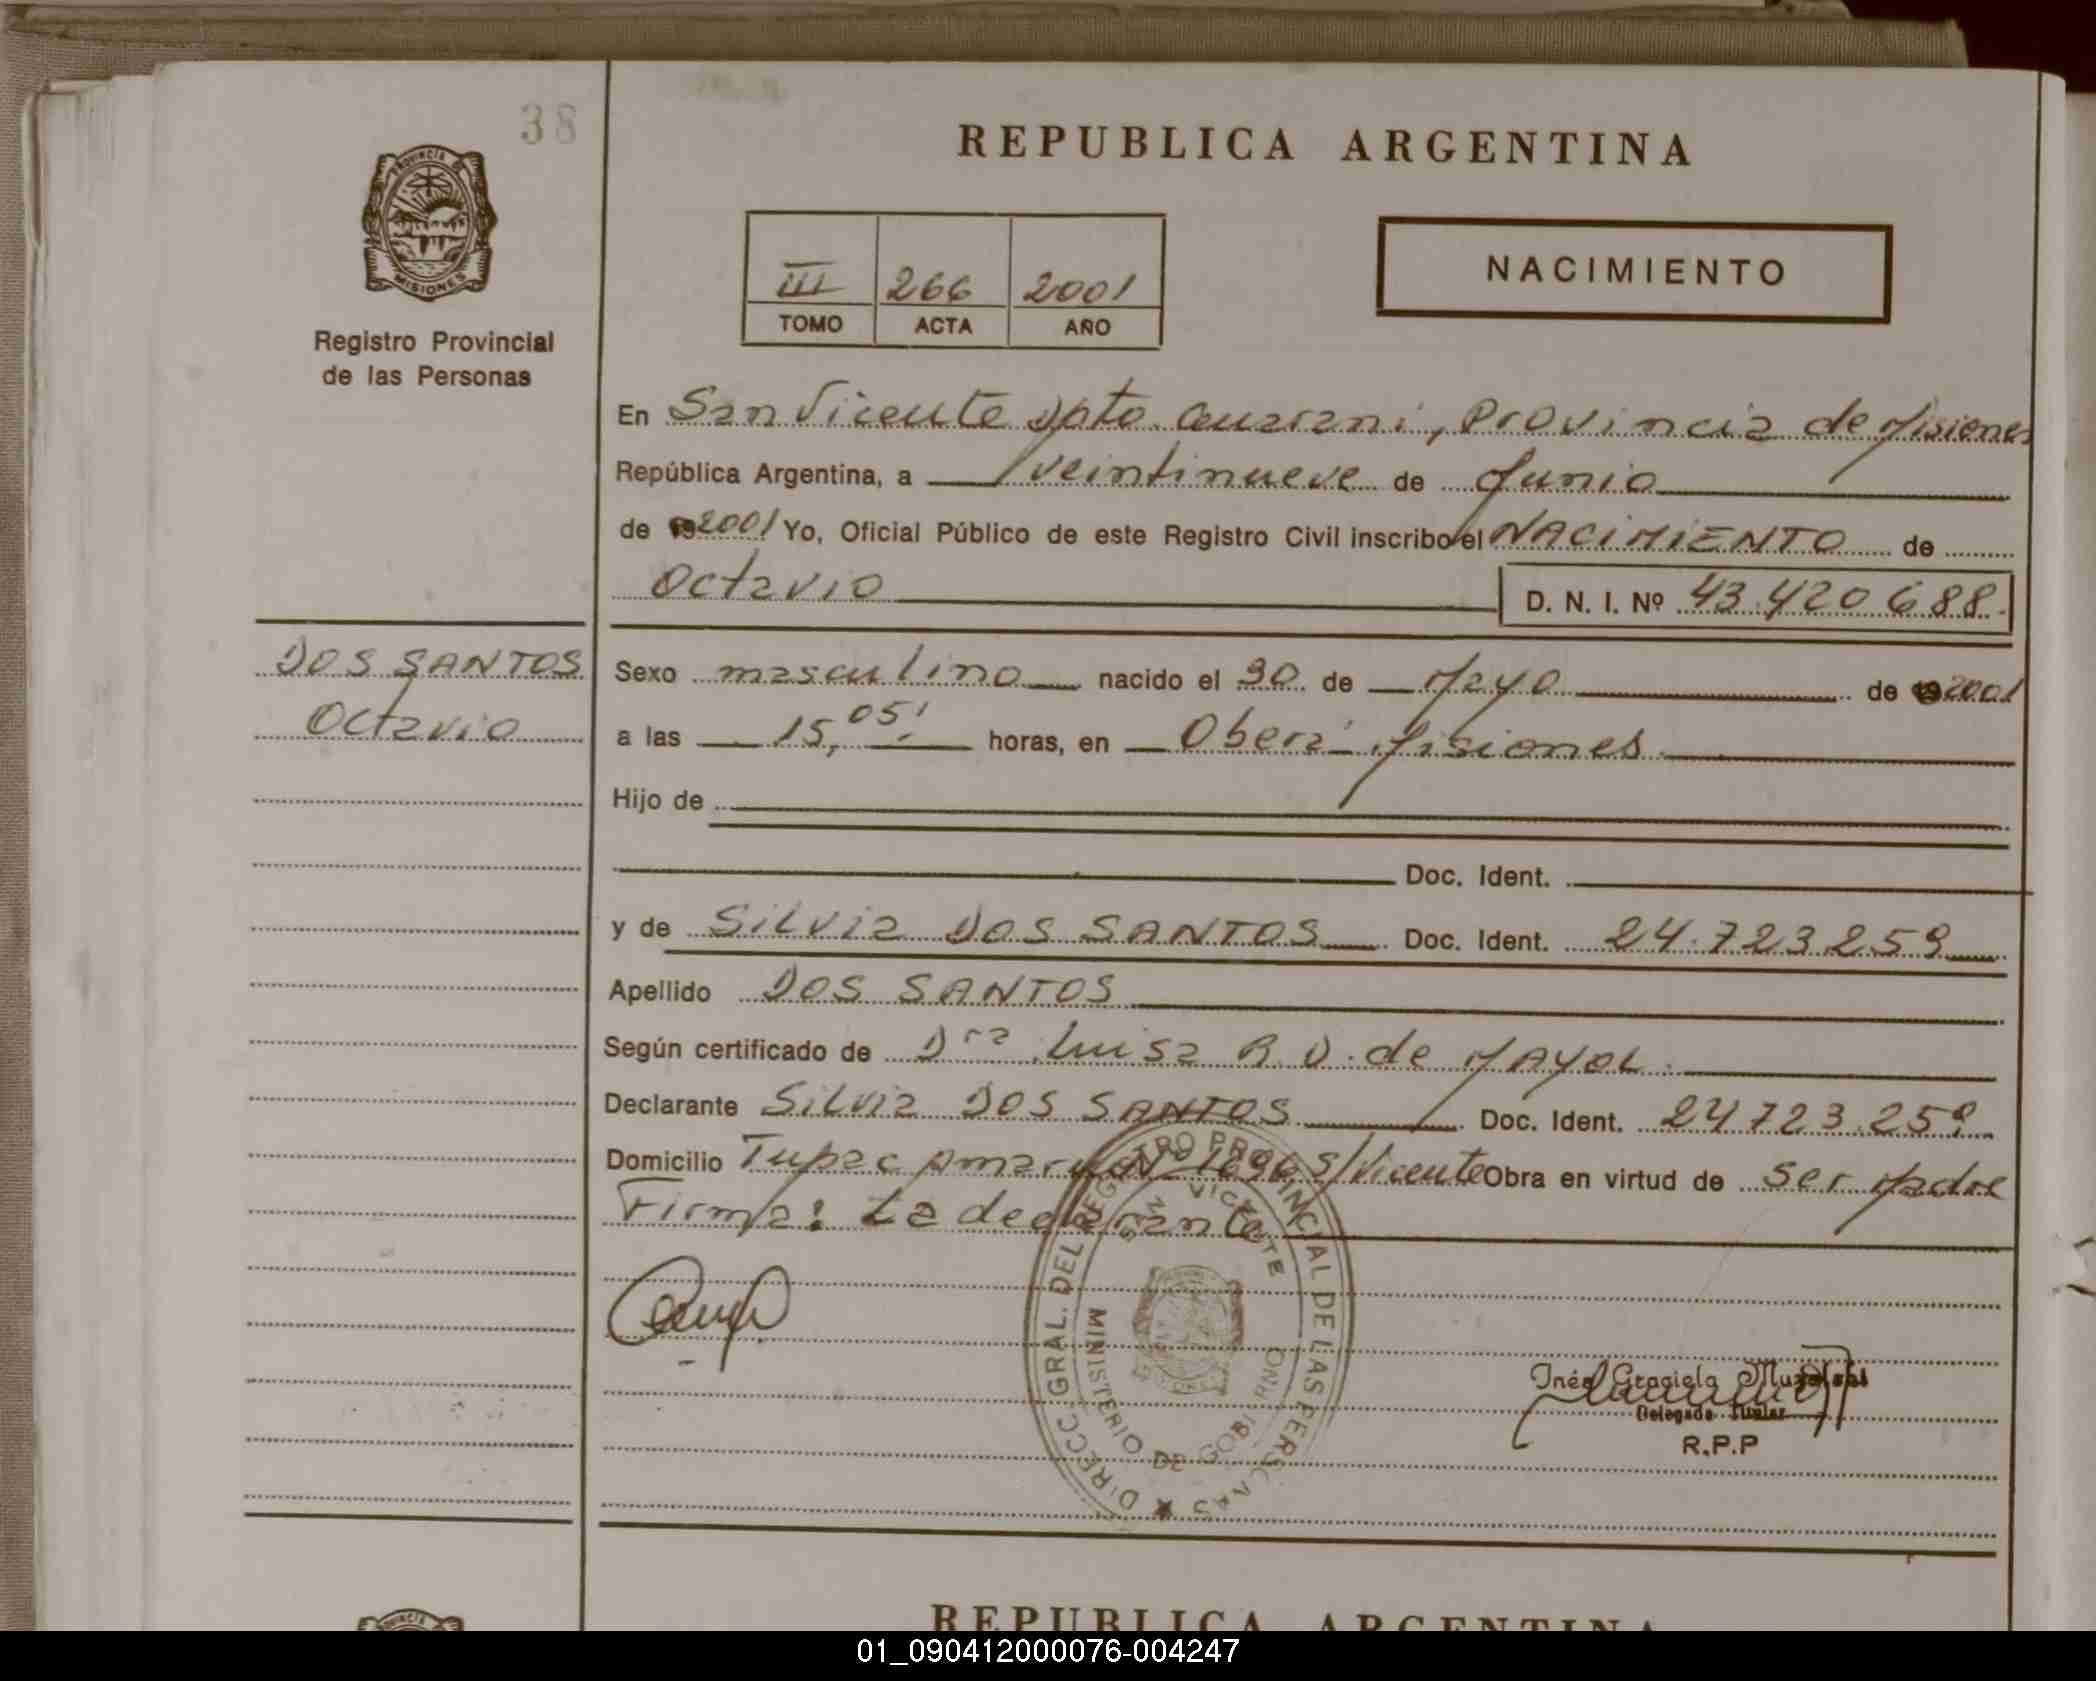 38
REPUBLICA ARGENTINA
PROVINCIA DE
MISIONES
III 266 2001
TOMO ACTA AÑO
NACIMIENTO
Registro Provincial
de las Personas
En San Vicente Dpto. Guarani, Provincia de Misiones
República Argentina, a veintinueve de Junio
de 2001 Yo, Oficial Público de este Registro Civil inscribo el NACIMIENTO de
Octavio D. N. I. Nº 43.420688.
DOS SANTOS
Octavio
Sexo masculino nacido el 30 de Mayo de 2001
a las 15,05' horas, en Oberá Misiones
Hijo de
Doc. Ident.
y de Silvia DOS SANTOS Doc. Ident. 24.723259
Apellido DOS SANTOS
Según certificado de Dra Luisa R. D. de MAYOL
Declarante Silvia DOS SANTOS Doc. Ident. 24723.259
Domicilio Tupac Amaru S/Vicente Obra en virtud de ser Madre
Firma: La declarante
DIRECC. GRAL. DEL REGISTRO PROVINCIAL DE LAS PERSONAS
SAN VICENTE
MINISTERIO DE GOBIERNO
Inés Graciela
Delegada Titular
R.P.P
REPUBLICA ARGENTINA
01_090412000076-004247